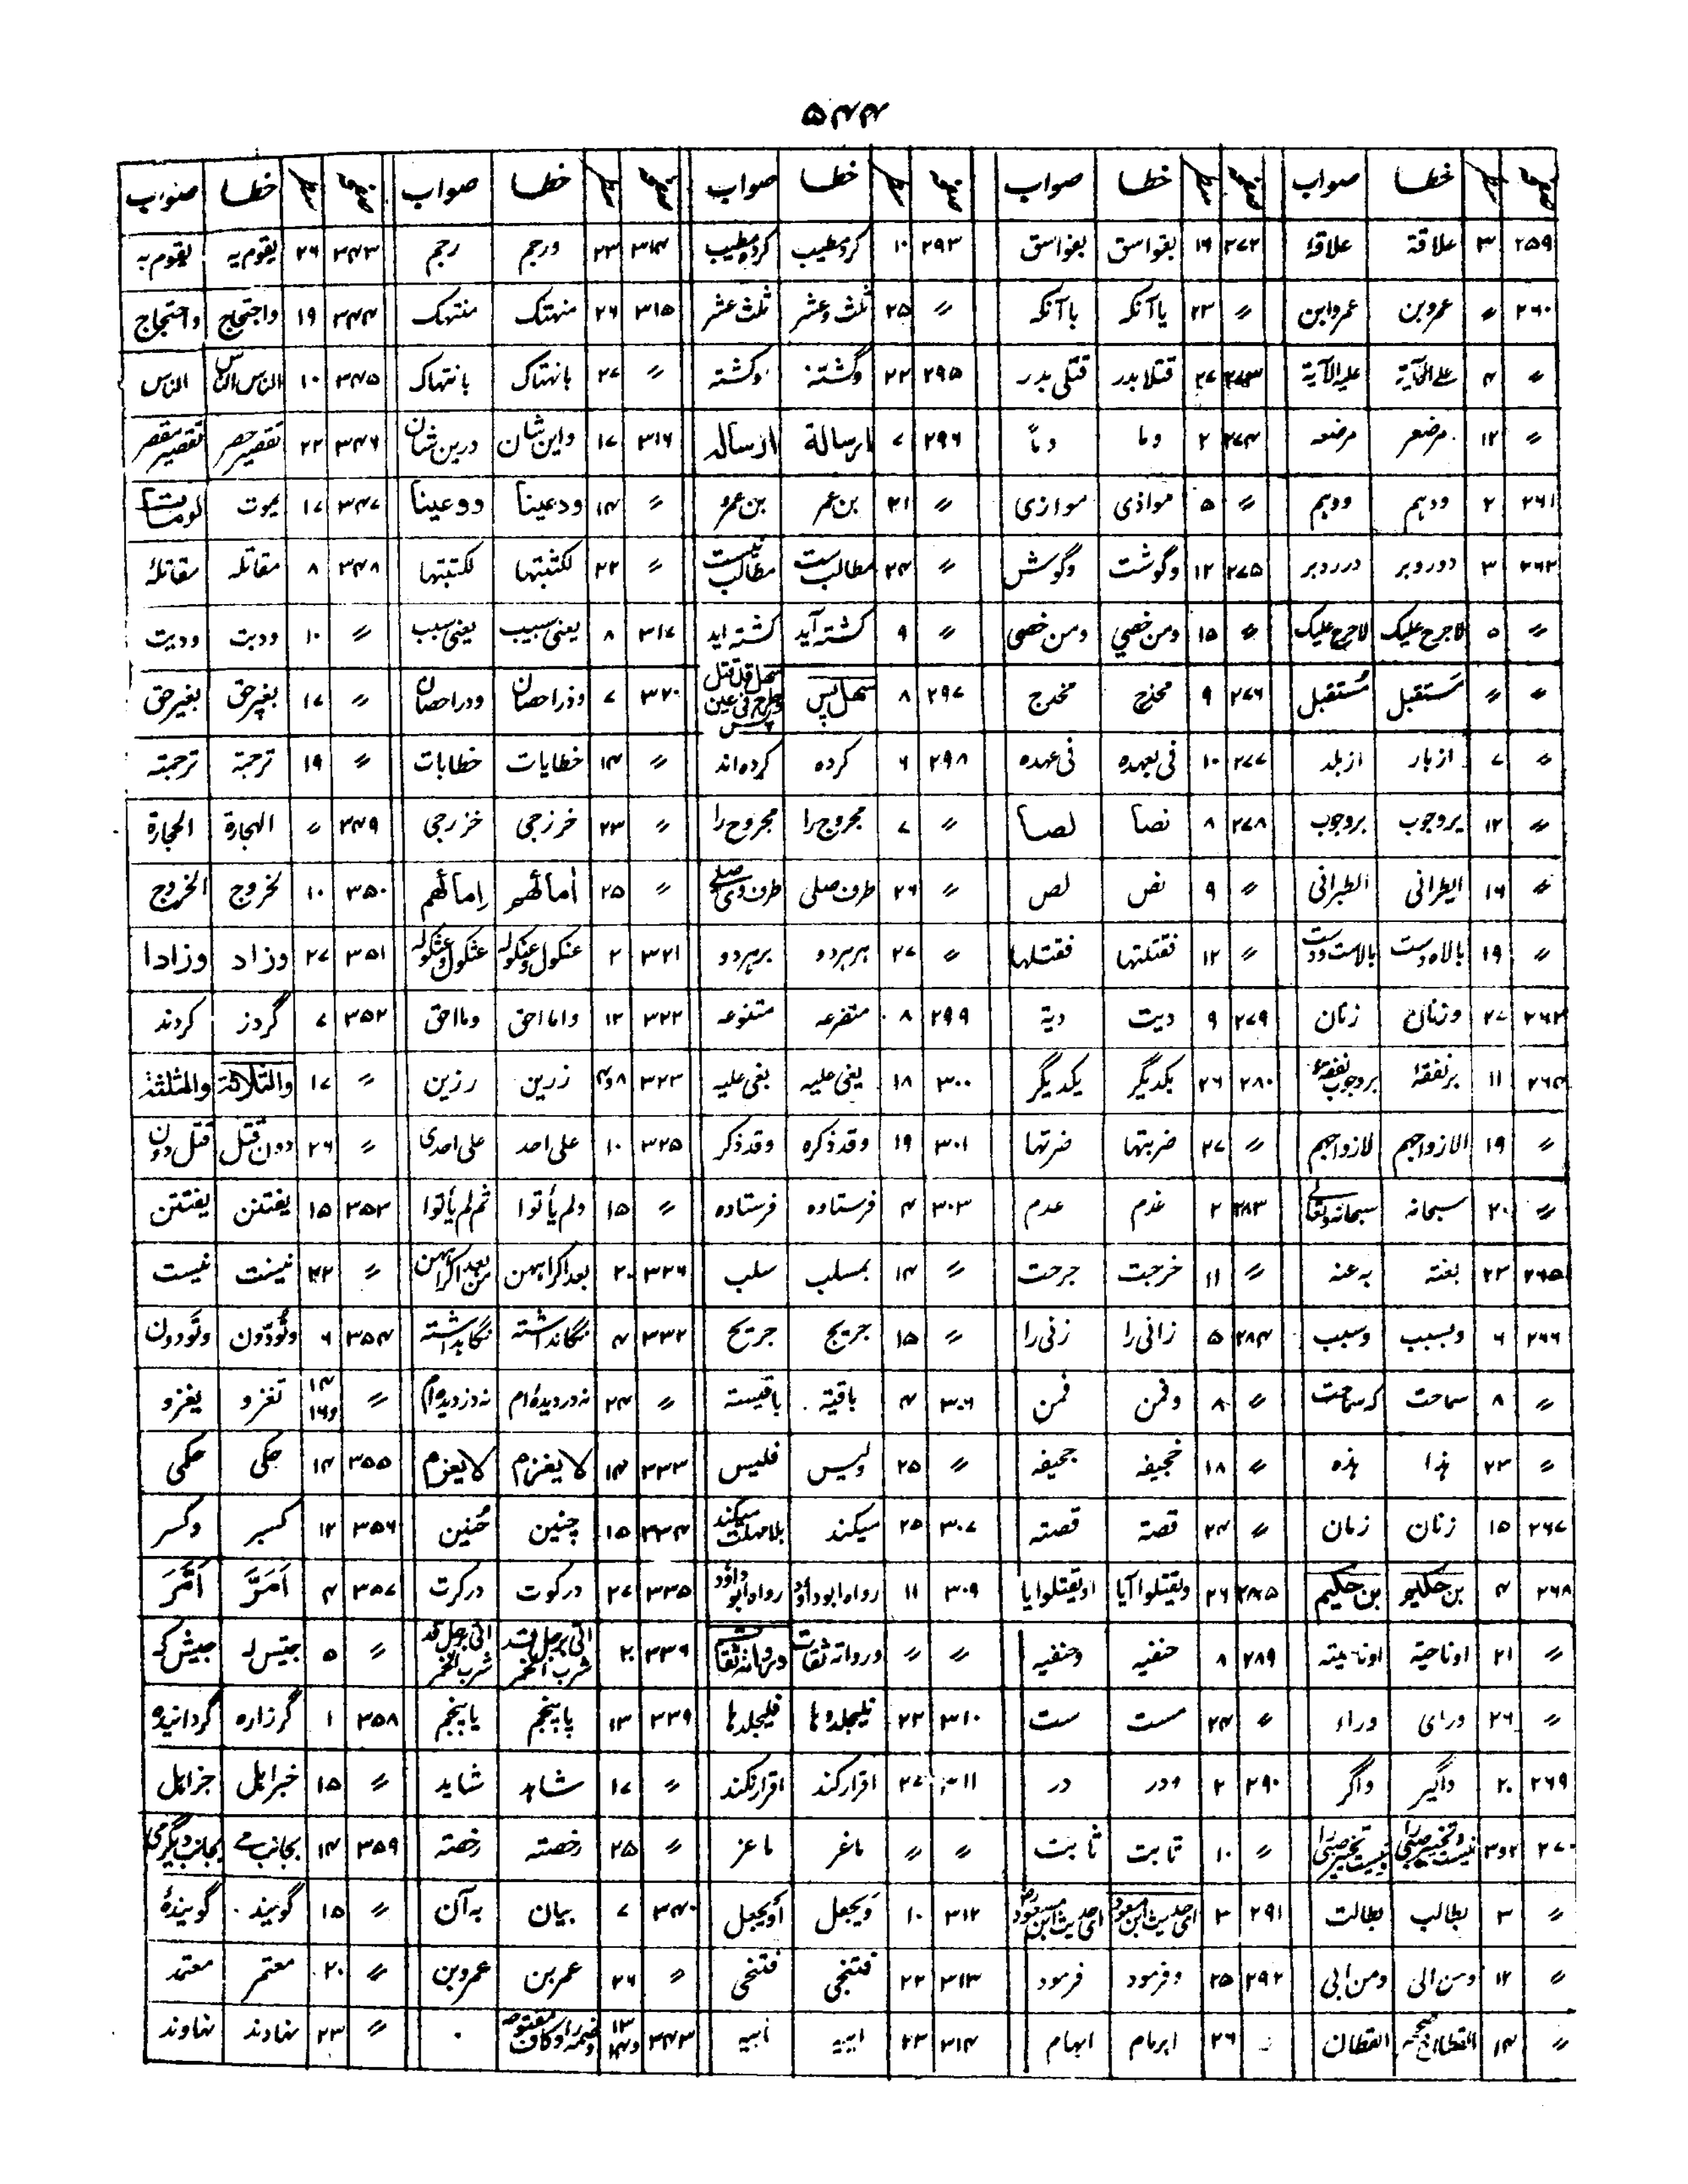 ۵۴۴
صفحہ سطر خطا صواب صفحہ سطر خطا صواب صفحہ سطر خطا صواب صفحہ سطر خطا صواب صفحہ سطر خطا صواب
۲۵۹ ۳ علاقة علاقۂ ۲۷۲ ۱۶ بقواسق بفواسق ۲۹۳ ۱۰ کردمطیب کردہ مطیب ۳۱۴ ۲۳ ورجم رجم ۳۴۳ ۲۶ یقوم یہ یقوم بہ
۲۶۰ 〃 عمروبن عمروابن 〃 ۲۳ یاآنکہ باآنکہ 〃 ۲۵ ثلث وعشر ثلث عشر ۳۱۵ ۲۶ منہتک منتہک ۳۴۴ ۱۹ واجتحاج واحتجاج
〃 ۴ علے الآیة علیہ الآیة ۲۷۳ ۲۷ قتلا بدر قتلی بدر ۲۹۵ ۲۲ وگشتہ وکشتہ 〃 ۲۷ بانہتاک بانتہاک ۳۴۵ ۱۰ الناس الناس الناس
〃 ۱۲ مرضعر مرضعہ ۲۷۴ ۲ وما وماً ۲۹۶ ۷ ارسالة ازسالہ ۳۱۶ ۱۷ واین شان درین شان ۳۴۶ ۲۲ تقصیر حصر تقصیر مقصر
۲۶۱ ۲ ودہم ووہم 〃 ۵ مواذی موازی 〃 ۲۱ بن عمر بن عمرو 〃 ۱۴ ودعینا دوعینا ۳۴۷ ۱۷ یموت لومات
۲۶۲ ۳ دوروبر درروبر ۲۷۵ ۱۲ وگوشت وگوش 〃 ۲۴ مطالب ست مطالب نیست 〃 ۲۲ لکتبتہا لکتبتہا ۳۴۸ ۸ مقاتلہ مقاتلۂ
〃 ۵ لاجرح علیک لاحرج علیک 〃 ۱۵ ومن خصی ومن خصی 〃 ۹ کشتہ آید کشتہ اید ۳۱۷ ۸ یعنی سبیب یعنی سبب 〃 ۱۰ ودبت ودیت
〃 〃 مَستقبل مُستقبل ۲۷۶ ۹ مخدج مخدج ۲۹۷ ۸ سھل پس ۳۲۰ ۷ وذراحصان ودراحصان 〃 ۱۷ بغیر حق بغیر حق
〃 ۷ ازبار ازبلد ۲۷۷ ۱۰ فی بعہدہ فی عہدہ ۲۹۸ ۶ کردہ کردہ اند 〃 ۱۴ خطایات خطابات 〃 ۱۹ ترجمة ترجمتہ
〃 ۱۲ یروجوب بروجوب ۲۷۸ ۸ نصاً لصاً 〃 ۷ مجروج را مجروح را 〃 ۲۳ خرزجی خزرجی ۳۴۹ 〃 الہجارة الحجارة
〃 ۱۶ الیطرانی الطبرانی 〃 ۹ نص لص 〃 ۲۶ طرف صلی طرف وی صلی 〃 ۲۵ أمائهم إمائهم ۳۵۰ ۱۰ لخروج الخروج
〃 ۱۹ 〃 ۱۲ فقتلتہا فقتلہا 〃 ۲۷ برہردو برہردو ۳۲۱ ۲ عنکول وعنکولہ عثکول وعثکولہ ۳۵۱ ۲۷ وزاد وزادا
۲۶۳ ۲۷ وزنان زنان ۲۷۹ ۹ دیت دیة ۲۹۹ ۸ متفرعہ متنوعہ ۳۲۲ ۱۲ وامااحق ومااحق ۳۵۲ ۷ گردز کردند
۲۶۴ ۱۱ برنفقۂ بروجوب نفقۂ ۲۸۰ ۲۶ بکدیگر یکدیگر ۳۰۰ ۱۸ یغی علیہ بغی علیہ ۳۲۳ ۸و۴ زرین رزین 〃 ۱۷ والثلاثة والمثلثة
〃 ۱۹ الازواجہم لازواجہم 〃 ۲۷ ضربتہا ضرتہا ۳۰۱ ۱۹ وقدذکرہ وقدذکر ۳۲۵ ۱۰ علی احد علی احدی 〃 ۲۶ دون قتل قتل دون
〃 ۲۰ سبحانہ سبحانہ وتعالی ۲۸۳ ۲ غدم عدم ۳۰۳ ۴ فرستاوہ فرستادہ 〃 ۱۵ ولم یأتوا ثم لم یأتوا ۳۵۳ ۱۵ یفتنن یفتتن
۲۶۵ ۲۳ بعنتہ بہ عنہ 〃 ۱۱ خرجت جرحت 〃 ۱۴ بمسلب سلب ۳۲۶ ۲۰ بعداکراہہن من بعداکراہہن 〃 ۲۲ نیست نیست
۲۶۶ ۶ وبسبب وسبب ۲۸۴ ۵ زانی را زنی را 〃 ۱۵ جریج جریح ۳۳۲ ۴ نگاندداشتہ نگاہداشتہ ۳۵۴ ۶ وتُودّون وتَودون
〃 ۸ سماحت کہ سماحت 〃 ۸ وفمن فمن ۳۰۶ ۴ باقیة باقیست 〃 ۲۴ نہ دردیدہ ام نہ دزدیدہ ام 〃 ۱۴و۱۶ تغزو یغزو
〃 ۲۳ ہذا ہذہ 〃 ۱۸ خجیفہ جحیفہ 〃 ۲۵ ولیس فلیس ۳۳۳ ۱۴ لایغزم لایعزم ۳۵۵ ۱۴ حکی حکی
۲۶۷ ۱۵ زنان زمان 〃 ۲۴ قصة قصتہ ۳۰۷ ۲۵ میکند بلامہلت میکند ۳۳۴ ۱۵ چنین حُنین ۳۵۶ ۱۲ کسیر وکسر
۲۶۸ ۴ بن حکلیو بن حکیم ۲۸۵ ۲۶ ویقتلوا آیا اویقتلوا یا ۳۰۹ ۱۱ رواہ ابوداؤد رواہ ابوداؤد ۳۳۵ ۲۷ درکوت درکرت ۳۵۷ ۴ اَمَرَّ اَمَّرَ
〃 ۲۱ اوناحیة اوناحیتہ ۲۸۹ ۸ حنفیہ وحنفیہ 〃 〃 ورواتہ ثقات ۳۳۶ ۲۰ اتی برجل قد شرب الخمر 〃 ۵ جیش کہ
〃 ۲۶ ورای وراء 〃 ۲۴ مست ست ۳۱۰ ۲۲ فلیجلدوہا فلیجلدہا ۳۳۹ ۱۳ پاپنجم یاپنجم ۳۵۸ ۱ گرزارہ گردانیدہ
۲۶۹ ۲۰ داگیر واگر ۲۹۰ ۲ ودر در ۳۱۱ ۲۷ اقرار کند اقرار نکند 〃 ۱۷ شاہد شاید 〃 ۱۵ خبرایل جزایل
۲۷۰ ۲و۳ 〃 ۱۰ تابت ثابت 〃 〃 ماغر ماعز 〃 ۲۵ رخصتہ رخصة ۳۵۹ ۱۴ بجانب می بجانب دیگر می
〃 ۳ بطالب بطالت ۲۹۱ ۳ ای حدیث ابن مسعود ای حدیث ابن مسعود رض ۳۱۲ ۱۰ وَیجعل أویجعل ۳۴۰ ۷ بیان بہ آن 〃 ۱۵ گوئیند گویندۂ
〃 ۱۲ ومن الی ومن ابی ۲۹۲ ۲۵ وفرمود فرمود ۳۱۳ ۲۲ فتنجی فتنحی 〃 ۲۶ عمربن عمروبن 〃 ۲۰ معتمر معتمد
〃 ۱۴ القطان 〃 ۲۶ ابرہام ابہام ۳۱۴ ۲۳ ابیہ ۳۴۳ ۱۳و۱۴ 〃 ۲۳ نہادند نہاوند